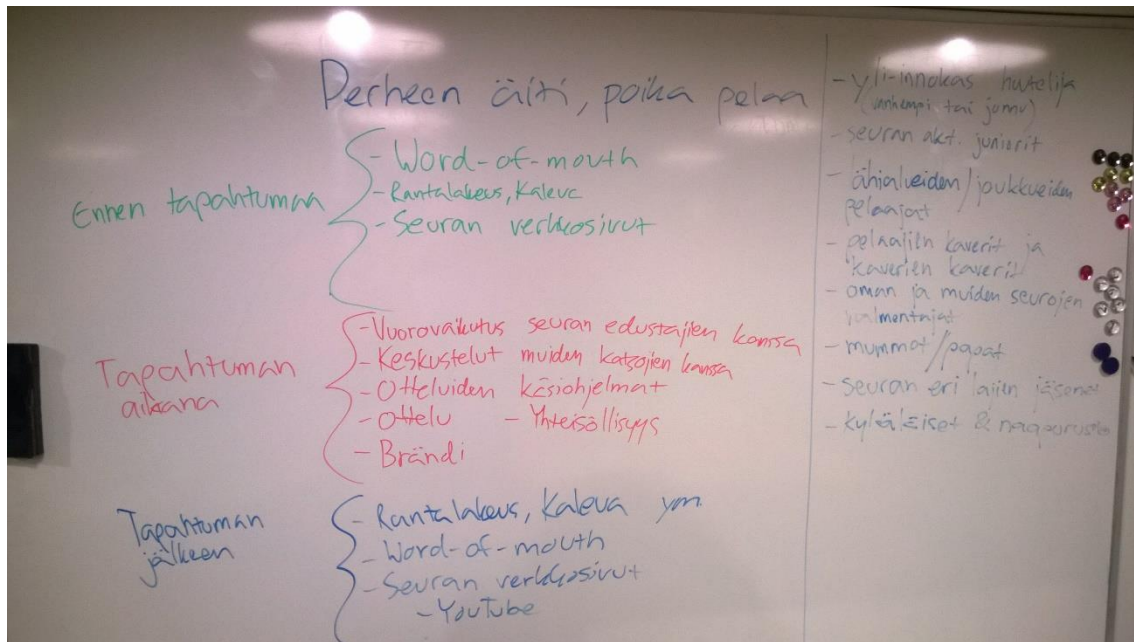 Perheen äiti, poika pelaa
Ennen tapahtumaa
- Word-of-mouth
- Rantalakeus, Kaleva
- Seuran verkkosivut
Tapahtuman
aikana
- Vuorovaikutus seuran edustajien kanssa
- Keskustelut muiden katsojien kanssa
- Otteluiden käsiohjelmat
- Ottelu - Yhteisöllisyys
- Brändi
Tapahtuman
jälkeen
- Rantalakeus, Kaleva ym.
- Word-of-mouth
- Seuran verkkosivut
- YouTube
- yli-innokas huutelija
(vanhempi tai jomu)
- seuran akt. juniorit
- lähialueiden/joukkueiden
pelaajat
- pelaajien kaverit ja
kaverien kaverit
- oman ja muiden seurojen
valmentajat
- mummat/papat
- seuran eri lajien jäsenet
- kyläläiset &